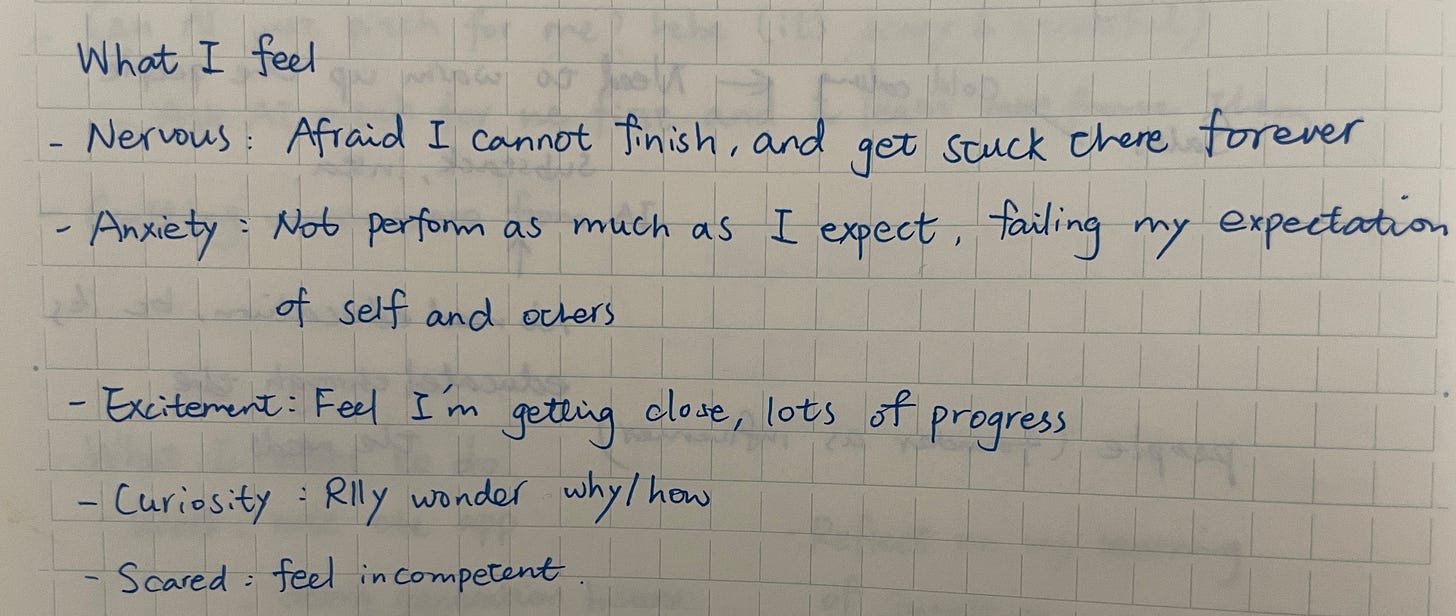 What I feel
- Nervous : Afraid I cannot finish, and get stuck there forever
- Anxiety : Not perform as much as I expect, failing my expectation
of self and others
- Excitement : Feel I'm getting close, lots of progress
- Curiosity : Rlly wonder why/how
- Scared : feel incompetent.